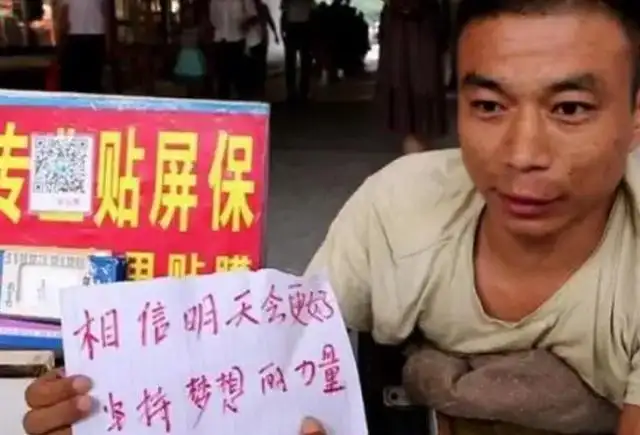 专业贴屏保
贴膜
相信明天会更好
坚持梦想的力量